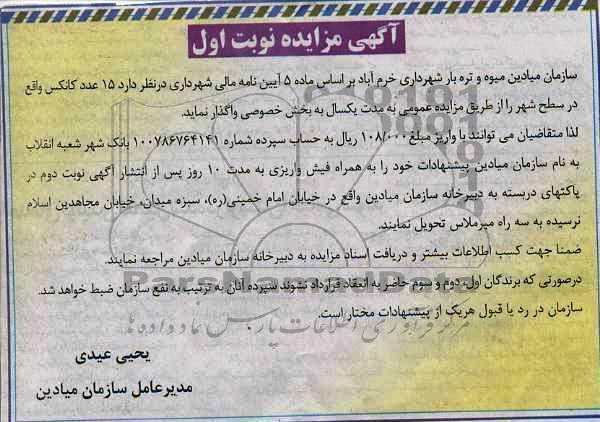 آگهی مزایده نوبت اول
سازمان میادین میوه و تره بار شهرداری خرم آباد بر اساس ماده ۵ آیین نامه مالی شهرداری درنظر دارد ۱۵ عدد کانکس واقع
در سطح شهر را از طریق مزایده عمومی به مدت یکسال به بخش خصوصی واگذار نماید.
لذا متقاضیان می توانند با واریز مبلغ ۱۰۸/۰۰۰ ریال به حساب سپرده شماره ۱۰۰۷۸۶۷۶۴۱۴۱ بانک شهر شعبه انقلاب
به نام سازمان میادین پیشنهادات خود را به همراه فیش واریزی به مدت ۱۰ روز پس از انتشار آگهی نوبت دوم در
پاکتهای دربسته به دبیرخانه سازمان میادین واقع در خیابان امام خمینی(ره)، سبزه میدان، خیابان مجاهدین اسلام
نرسیده به سه راه میرملاس تحویل نمایند.
ضمنا جهت کسب اطلاعات بیشتر و دریافت اسناد مزایده به دبیرخانه سازمان میادین مراجعه نمایند.
درصورتی که برندگان اول، دوم و سوم حاضر به انعقاد قرارداد نشوند سپرده آنان به ترتیب به نفع سازمان ضبط خواهد شد.
سازمان در رد یا قبول هریک از پیشنهادات مختار است.
یحیی عیدی
مدیرعامل سازمان میادین
ParsNamadData
مرکز فرآوری اطلاعات پارس نماد داده ها